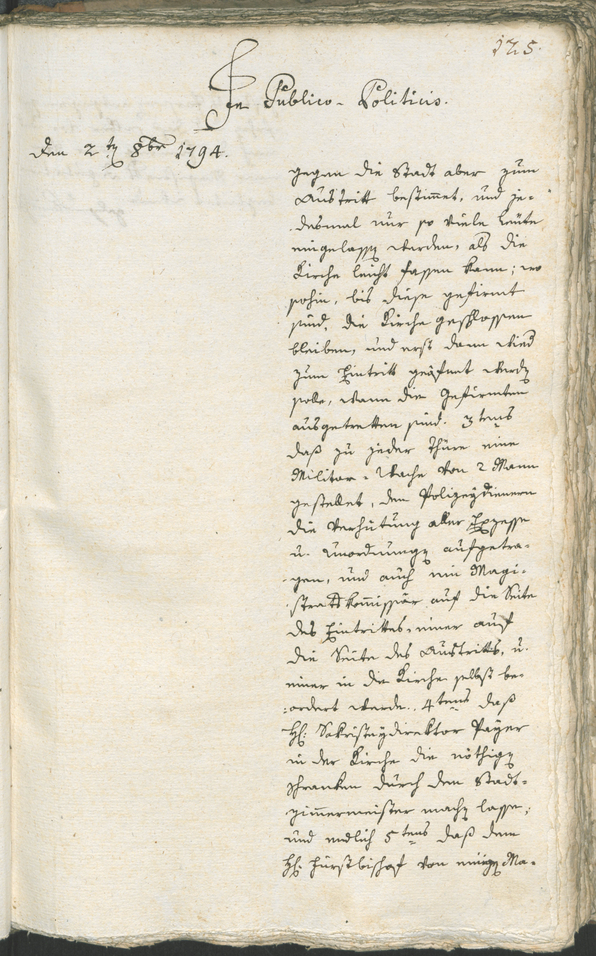 125.
In Publico-Politicis.
Den 2t 8br 1794.
gegen die Stadt aber zum
Austritt bestimet, und je-
desmal nur so viele Leute
eingelassen werden, als die
Kirche leicht fassen kann; wo
sohin, bis diese gefirmt
sind, die Kirche geschlossen
bleiben, und erst dann wied
zum Eintritt geöfnet werden
solle, wann die Gefirmten
ausgetretten sind. 3tens
daß zu jeder Thüre eine
Militar-Wache von 2 Mann
gestellet, den Polizeydienern
die Verhütung aller Exzesse
u. Unordnungen aufgetra-
gen, und auch ein Magi-
stratskommissär auf die Seite
des Eintrittes, einer auf
die Seite des Austritts, u.
einer in die Kirche selbst be-
ordert werde. 4tens daß
H: Sakristeydirektor Payer
in der Kirche die nöthigen
Schranken durch den Stadt-
zimmermeister machen lasse;
und endlich 5tens daß dem
H: Fürstbischof von einigen Ma-